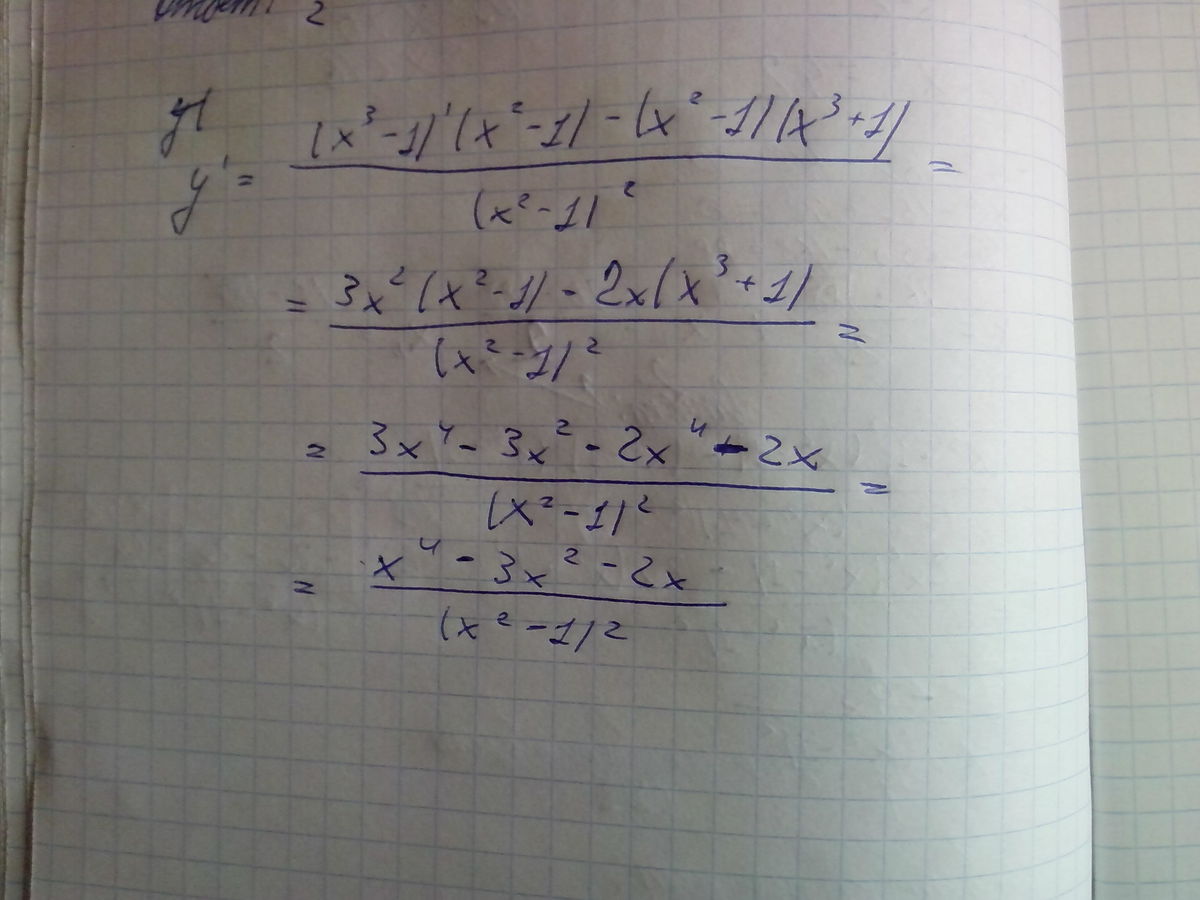 Ответ: 2
y'
y' = ((x³-1)'(x²-1) - (x²-1)(x³+1))/(x²-1)² =
= (3x²(x²-1) - 2x(x³+1))/(x²-1)² =
= (3x⁴ - 3x² - 2x⁴ - 2x)/(x²-1)² =
= (x⁴ - 3x² - 2x)/(x²-1)²